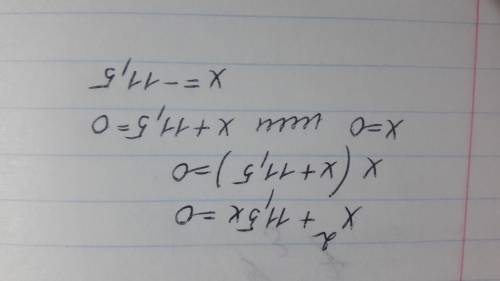 x² + 11,5x = 0
x (x + 11,5) = 0
x = 0 или x + 11,5 = 0
x = -11,5